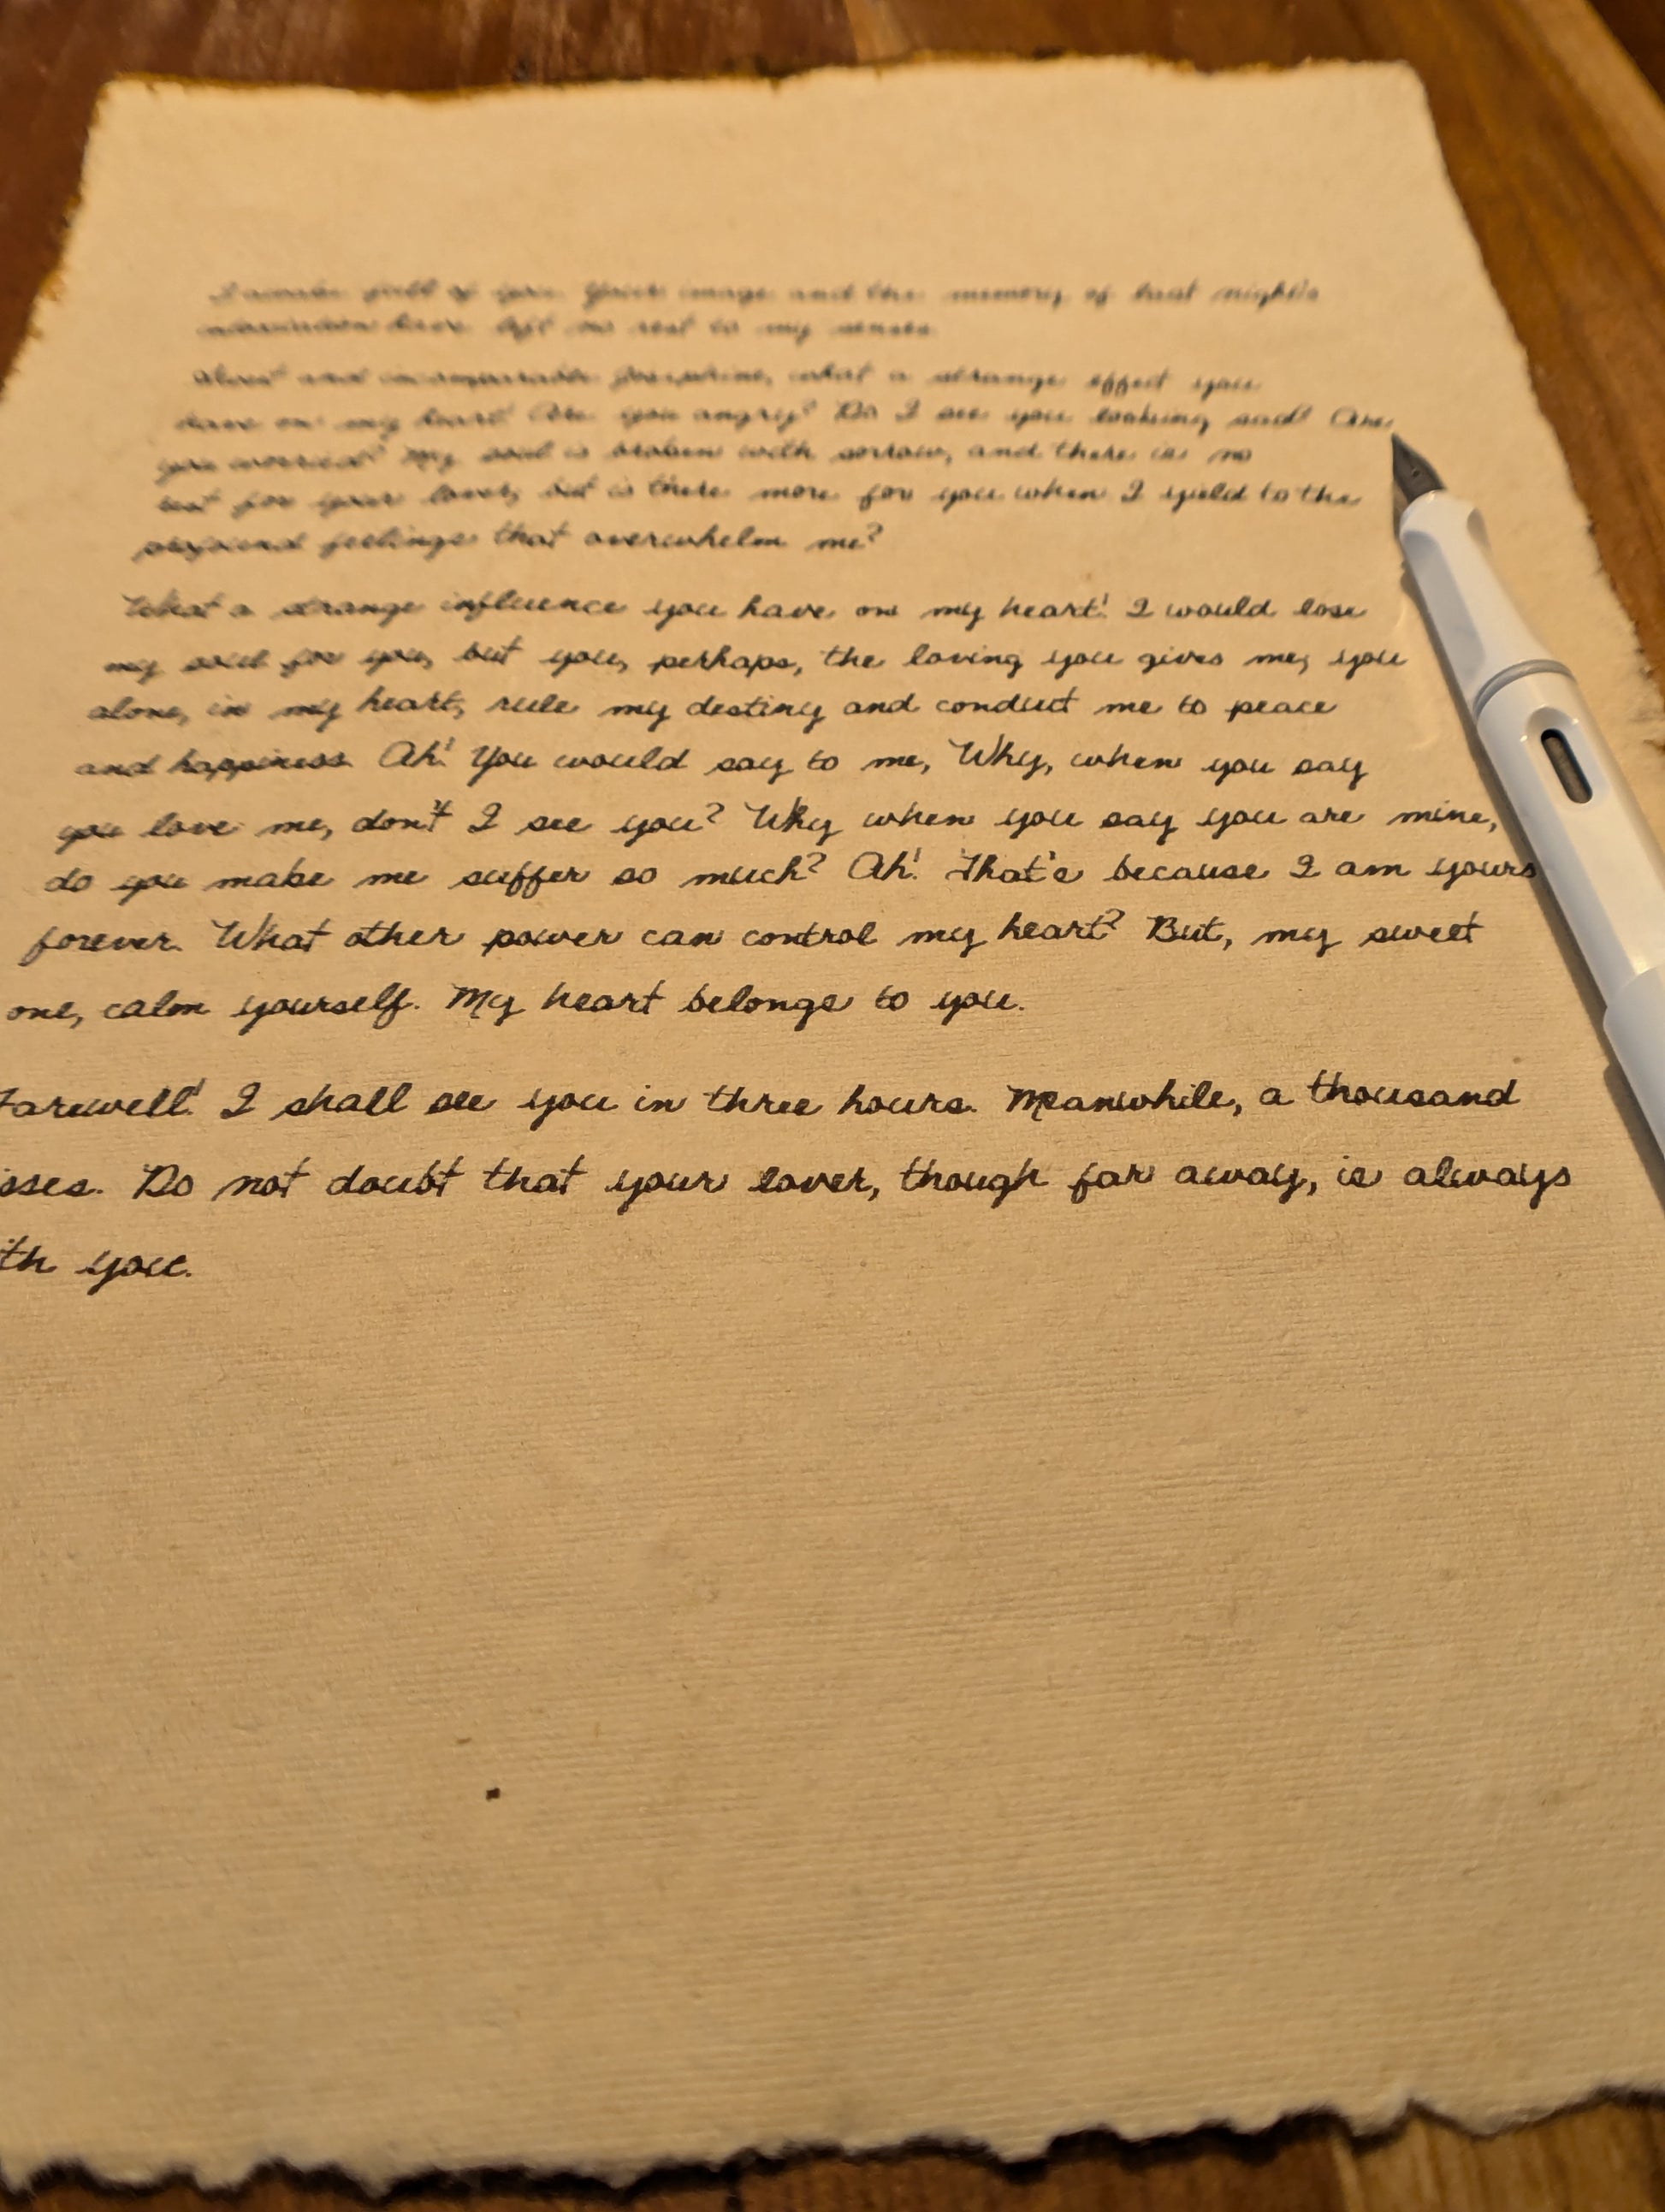 I awake full of you. Your image and the memory of last night's
have left no rest to my senses.
and incomparable Josephine, what a strange effect you
have on my heart! Are you angry? Do I see you looking sad? Are
you worried? My soul is broken with sorrow, and there is no
rest for your lover, but is there more for you when I yield to the
profound feelings that overwhelm me?
What a strange influence you have on my heart! I would lose
my soul for you, but you, perhaps, the loving you gives me, you
alone, in my heart, rule my destiny and conduct me to peace
and happiness. Ah! You would say to me, Why, when you say
you love me, don't I see you? Why when you say you are mine,
do you make me suffer so much? Ah! That's because I am yours
forever. What other power can control my heart? But, my sweet
one, calm yourself. My heart belongs to you.
Farewell! I shall see you in three hours. Meanwhile, a thousand
sses. Do not doubt that your lover, though far away, is always
th you.